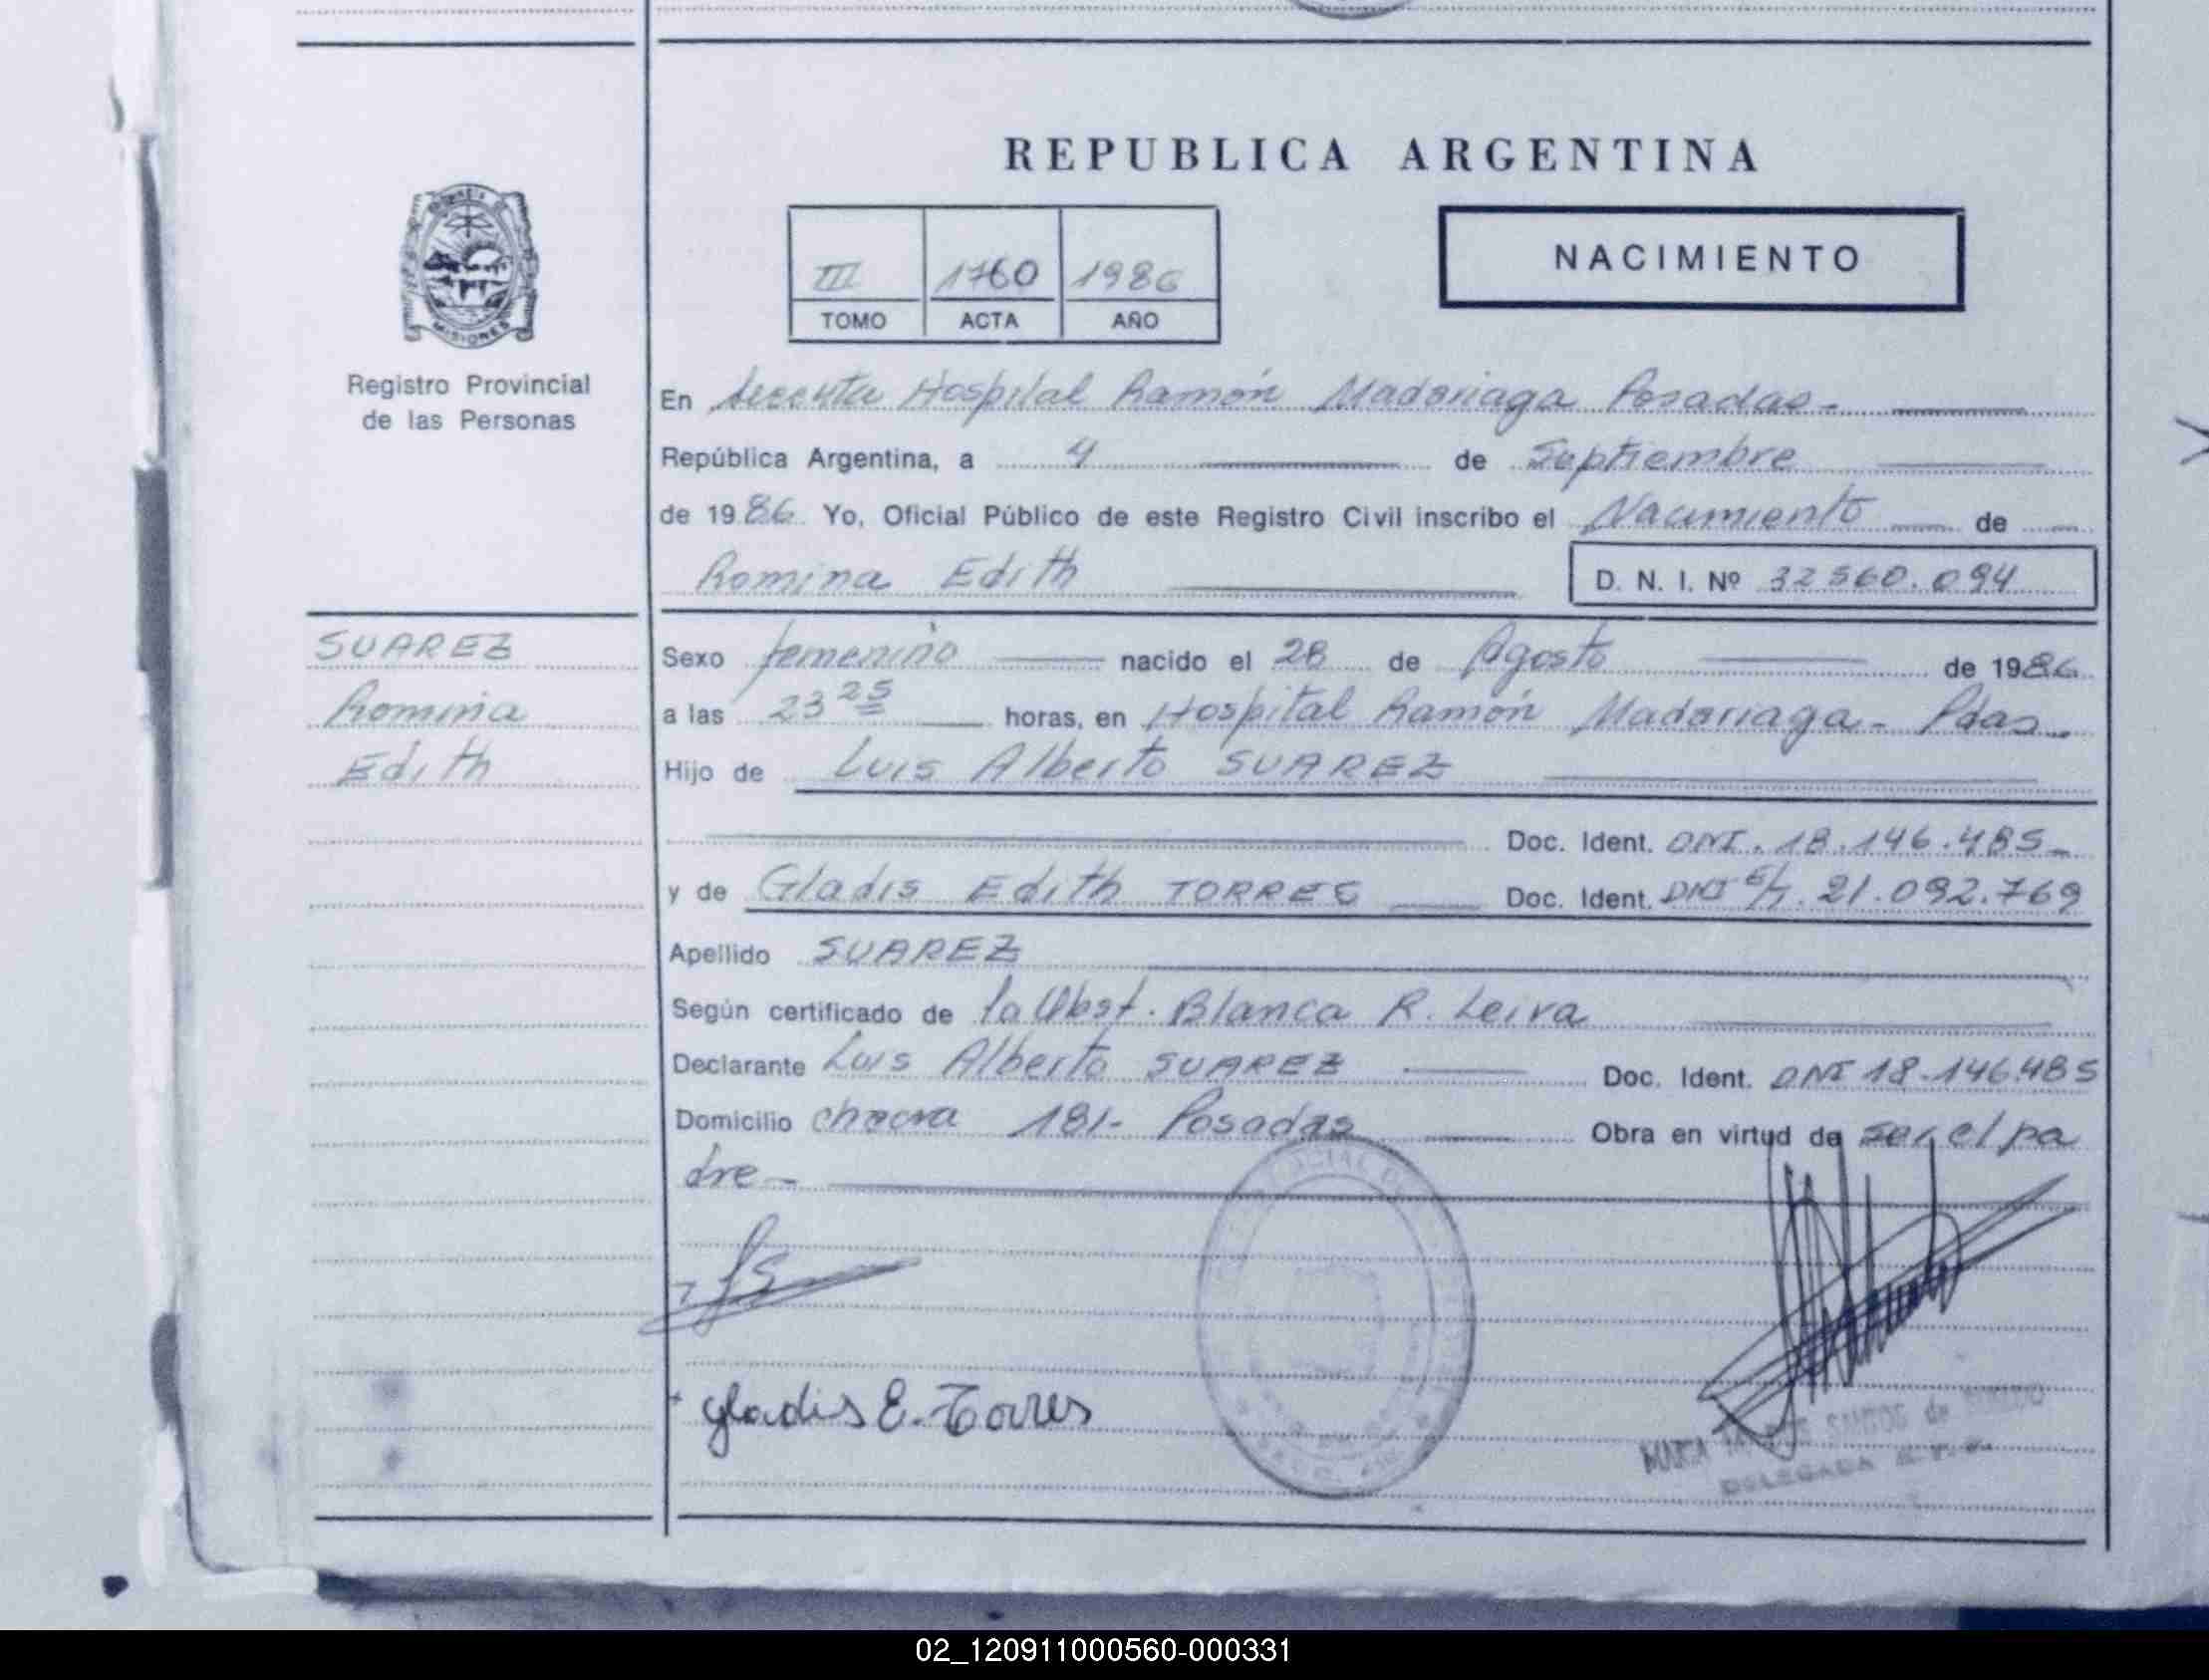 REPUBLICA ARGENTINA
NACIMIENTO
III 1760 1986
TOMO ACTA AÑO
MISIONES
Registro Provincial
de las Personas
En Hospital Ramón Madariaga Posadas-
República Argentina, a 4 de Septiembre
de 1986 Yo, Oficial Público de este Registro Civil inscribo el Nacimiento de
Romina Edith D. N. I. Nº 32.560.094
SUAREZ
Romina
Edith
Sexo femenino nacido el 28 de Agosto de 1986
a las 23 25 horas, en Hospital Ramón Madariaga- Pdas-
Hijo de Luis Alberto SUAREZ
Doc. Ident. DNI. 18.146.485-
y de Gladis Edith TORRES Doc. Ident. DNI E/T. 21.092.769
Apellido SUAREZ
Según certificado de la Obst. Blanca R. Leiva
Declarante Luis Alberto SUAREZ Doc. Ident. DNI 18.146.485
Domicilio chacra 181- Posadas Obra en virtud de ser el pa
dre-
Gladis E. Torres
MARIA SANTOS de
DELEGADA
02_120911000560-000331